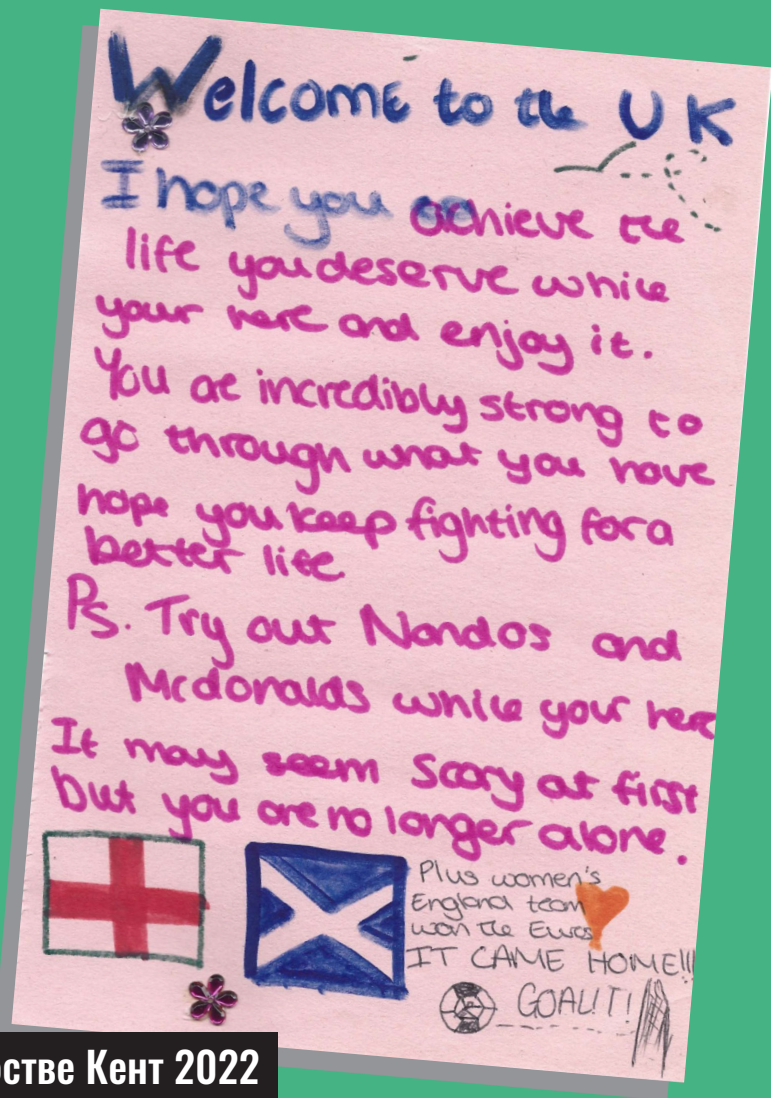 Welcome to the UK
I hope you achieve the
life you deserve while
your here and enjoy it.
You are incredibly strong to
go through what you have
hope you keep fighting for a
better life
Ps. Try out Nandos and
Mcdonalds while your here
It may seem scary at first
but you are no longer alone.
Plus women's
England team
won the Euros
IT CAME HOME!!!
GOAL!T!
стве Кент 2022